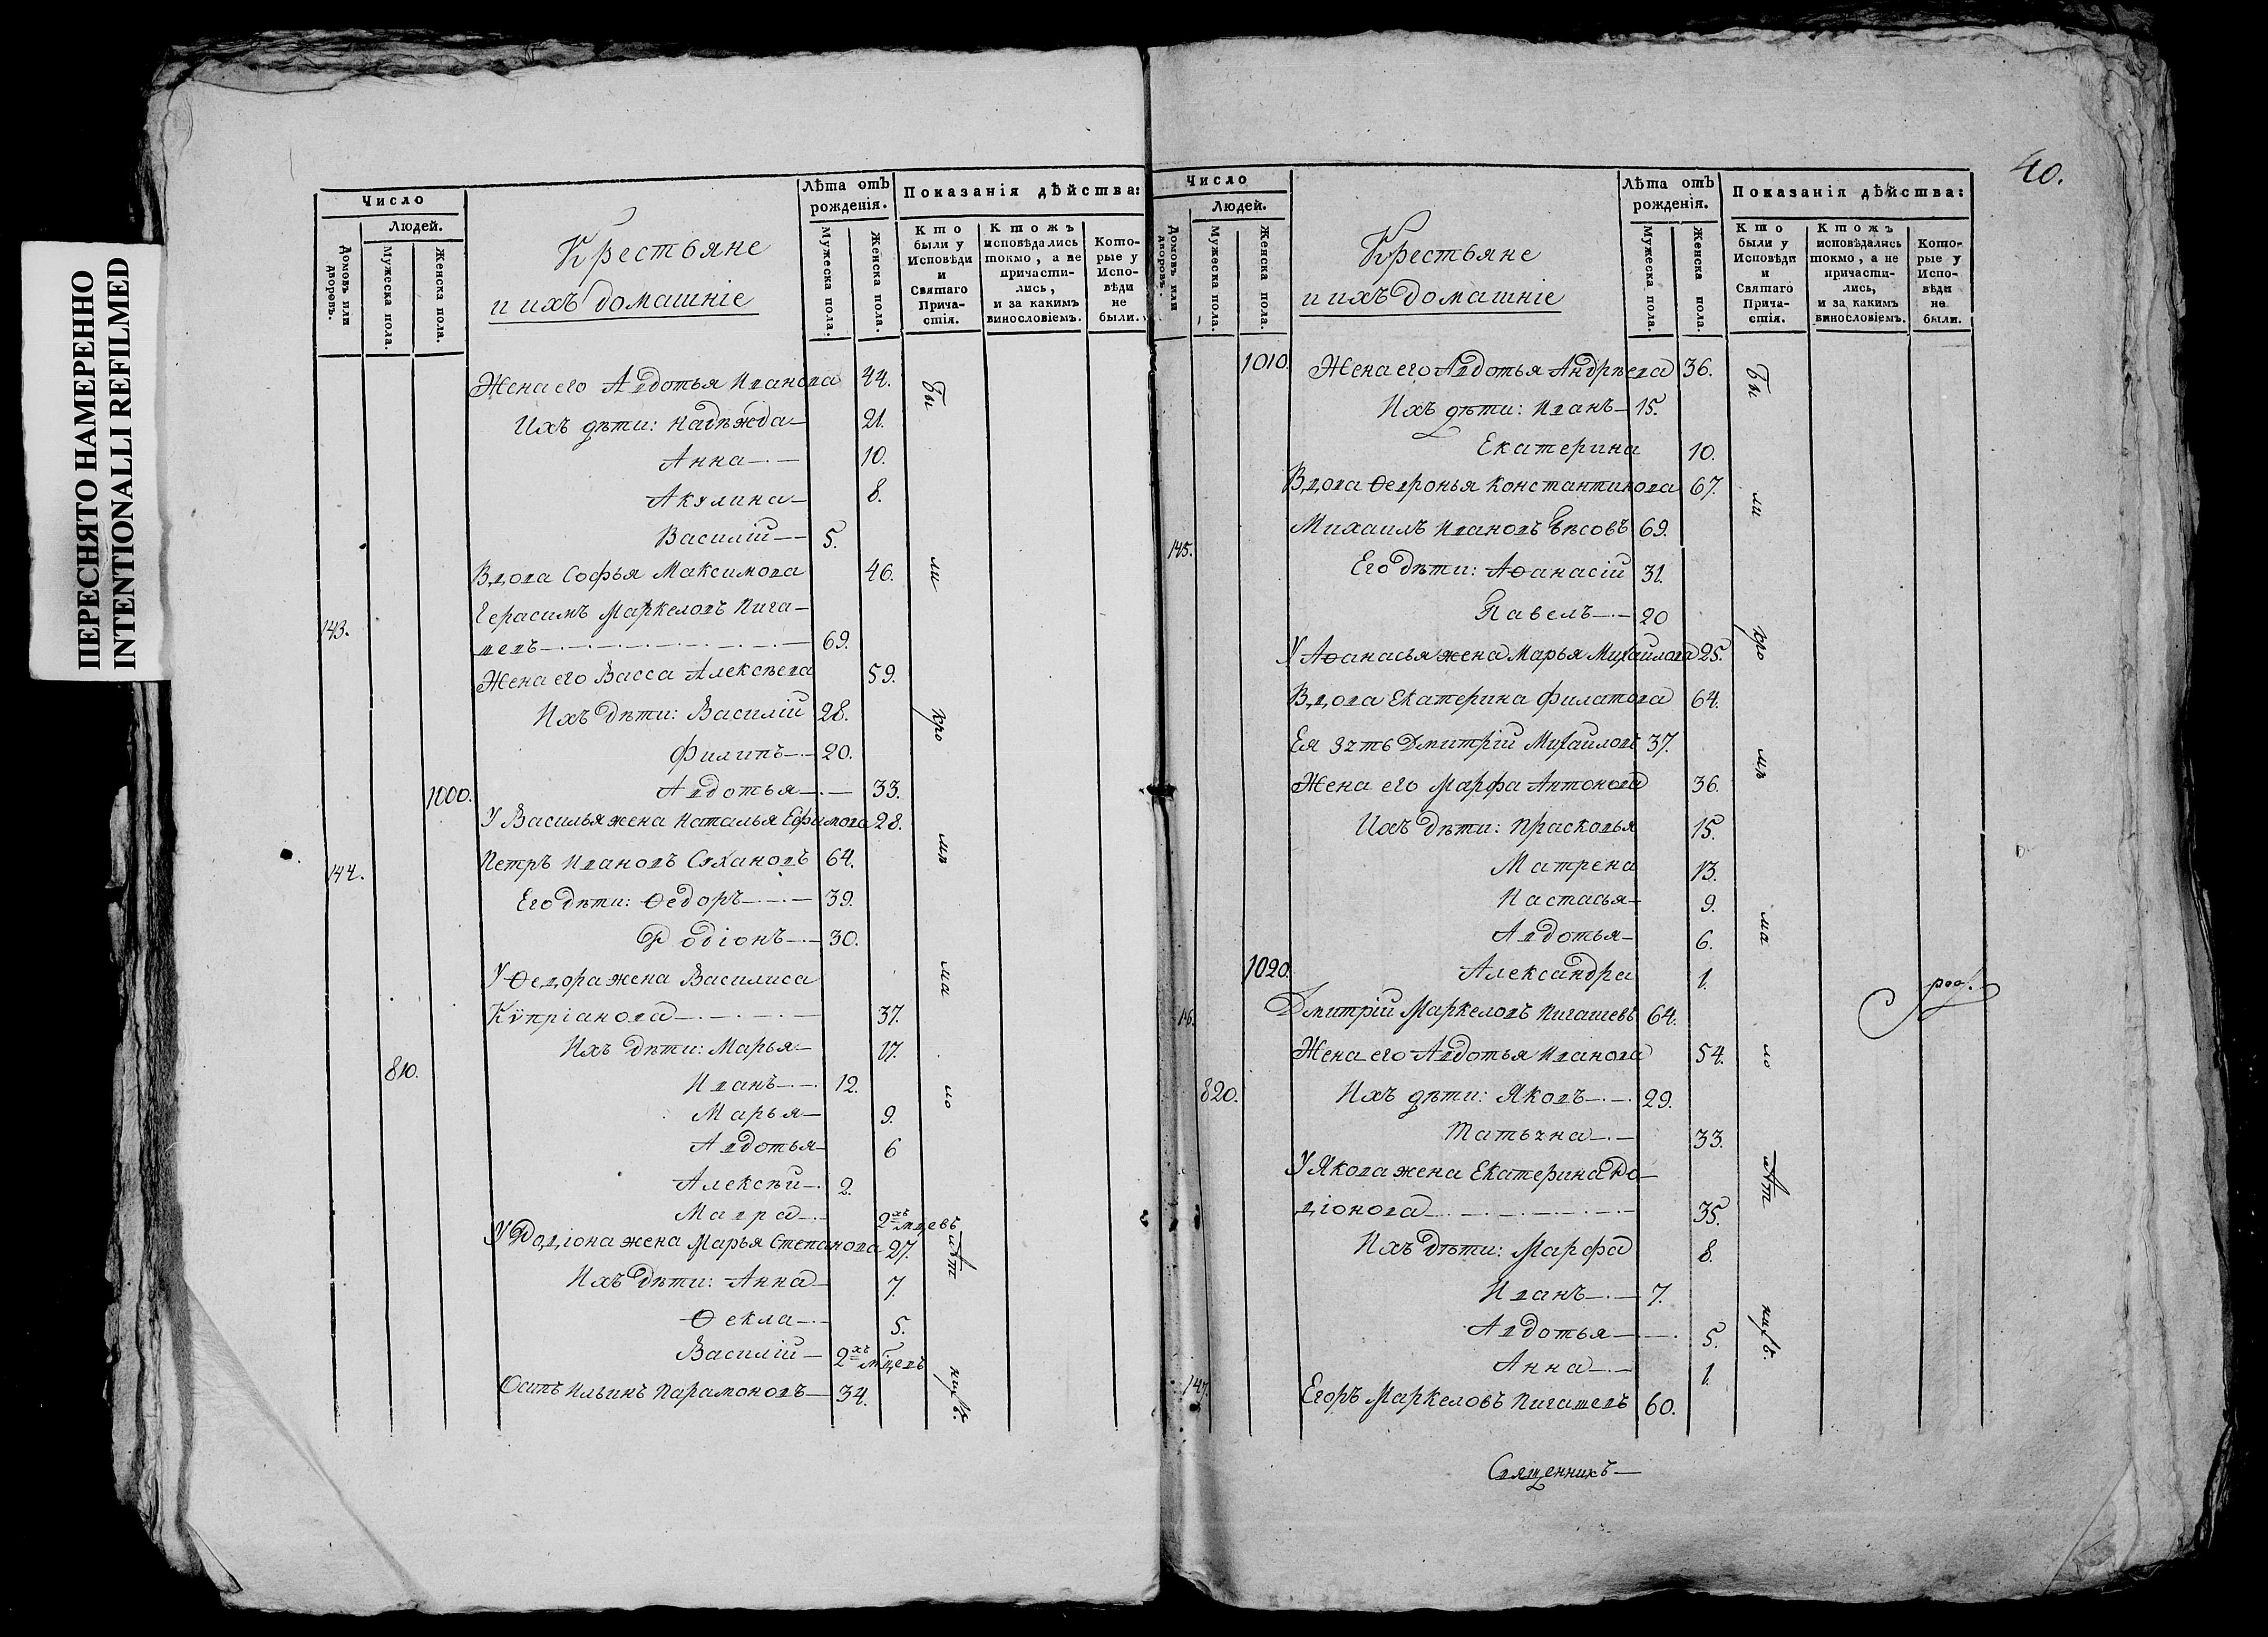 ПЕРЕСНЯТО НАМЕРЕННО
INTENTIONALLI REFILMED
Число
Людей.
Домовъ или дворовъ.
Мужеска пола.
Женска пола.
Крестьяне
и ихъ домашніе
Лѣта отъ рожденія.
Мужеска пола.
Женска пола.
Показанія дѣйства:
Кто были у Исповѣди и Святаго Причастія.
Ктожъ исповѣдались токмо, а не причастились, и за какимъ винословіемъ.
Которые у Исповѣди не были.
Жена его Авдотья Иванова 44.
Ихъ дѣти: Надѣжда 21.
Анна 10.
Акулина 8.
Василій 5.
Вдова Софья Максимова 46.
143. Герасимъ Маркеловъ Пига-
шевъ 69.
Жена его Васса Алексѣева 59.
Ихъ дѣти: Василій 28.
Филипъ 20.
1000. Авдотья 33.
У Василья жена Наталья Ефимова 28.
144. Петръ Ивановъ Сухановъ 64.
Его дѣти: Ѳедоръ 39.
Родіонъ 30.
У Ѳедора жена Василиса
Кѵпріанова 37.
Ихъ дѣти: Марья 17.
810. Иванъ 12.
Марья 9.
Авдотья 6
Алексѣй 2.
Мавра 2хъ мцевъ
У Родіона жена Марья Степанова 27.
Ихъ дѣти: Анна 7.
Ѳекла 5.
Василій 2хъ мцевъ
Осипъ Ильинъ Парамоновъ 34.
бы
ли
кро
мѣ
ма
ло
лѣт
нихъ.
40.
Число
Людей.
Домовъ или дворовъ.
Мужеска пола.
Женска пола.
Крестьяне
и ихъ домашніе
Лѣта отъ рожденія.
Мужеска пола.
Женска пола.
Показанія дѣйства:
Кто были у Исповѣди и Святаго Причастія.
Ктожъ исповѣдались токмо, а не причастились, и за какимъ винословіемъ.
Которые у Исповѣди не были.
1010. Жена его Авдотья Андрѣева 36.
Ихъ дѣти: Иванъ 15.
Екатерина 10.
Вдова Ѳевронья Константинова 67.
145. Михаилъ Ивановъ Бѣсовъ 69.
Его дѣти: Аѳанасій 31.
Павелъ 20
У Аѳанасья жена Марья Михайлова 25.
Вдова Екатерина Филатова 64.
Ея зять Дмитрій Михайловъ 37.
Жена его Марфа Антонова 36.
Ихъ дѣти: Прасковья 15.
Матрена 13.
Настасья 9.
Авдотья 6.
1020. Александра 1.
Дмитрій Маркеловъ Пигашевъ 64.
Жена его Авдотья Иванова 54.
820. Ихъ дѣти: Яковъ 29.
Татьяна 33.
У Якова жена Екатерина Ро-
діонова 35.
Ихъ дѣти: Марфа 8.
Иванъ 7.
Авдотья 5.
Анна 1.
147. Егоръ Маркеловъ Пигашевъ 60.
бы
ли
кро
мѣ
ма
ло
лѣт
нихъ.
Священникъ